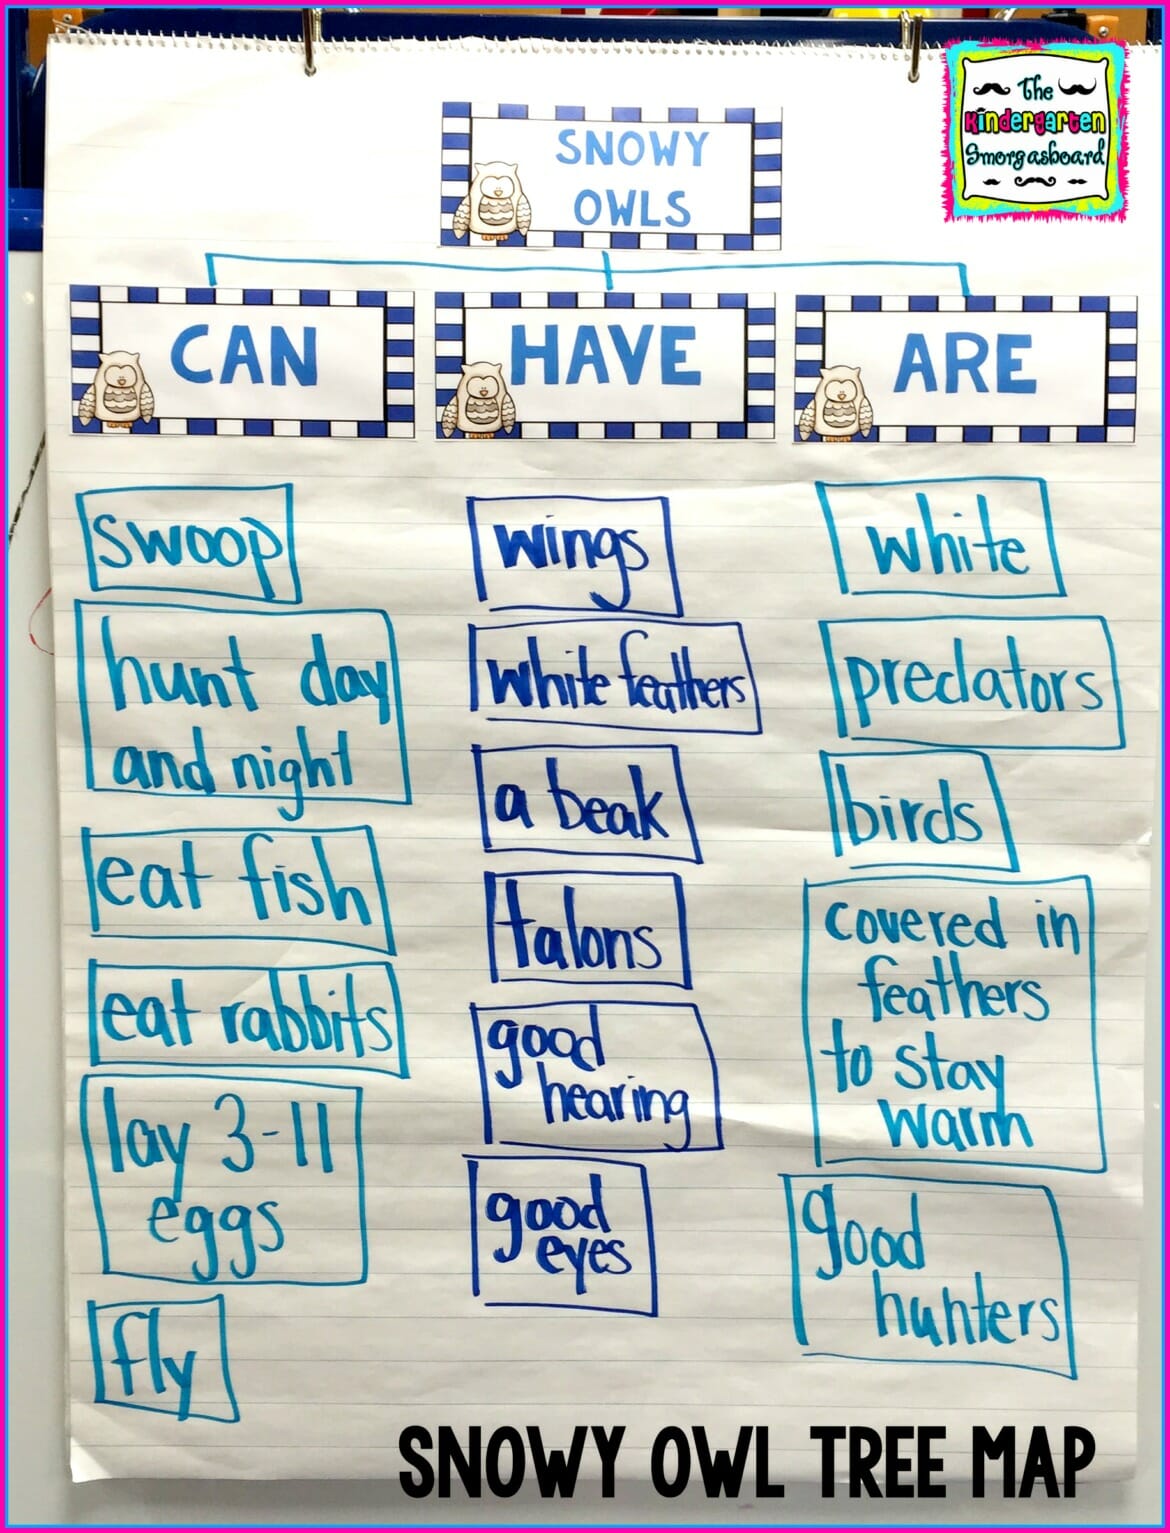 The
Kindergarten
Smorgasboard
SNOWY
OWLS
CAN
HAVE
ARE
swoop
hunt day
and night
eat fish
eat rabbits
lay 3-11
eggs
fly
wings
white feathers
a beak
talons
good
hearing
good
eyes
white
predators
birds
covered in
feathers
to stay
warm
good
hunters
SNOWY OWL TREE MAP